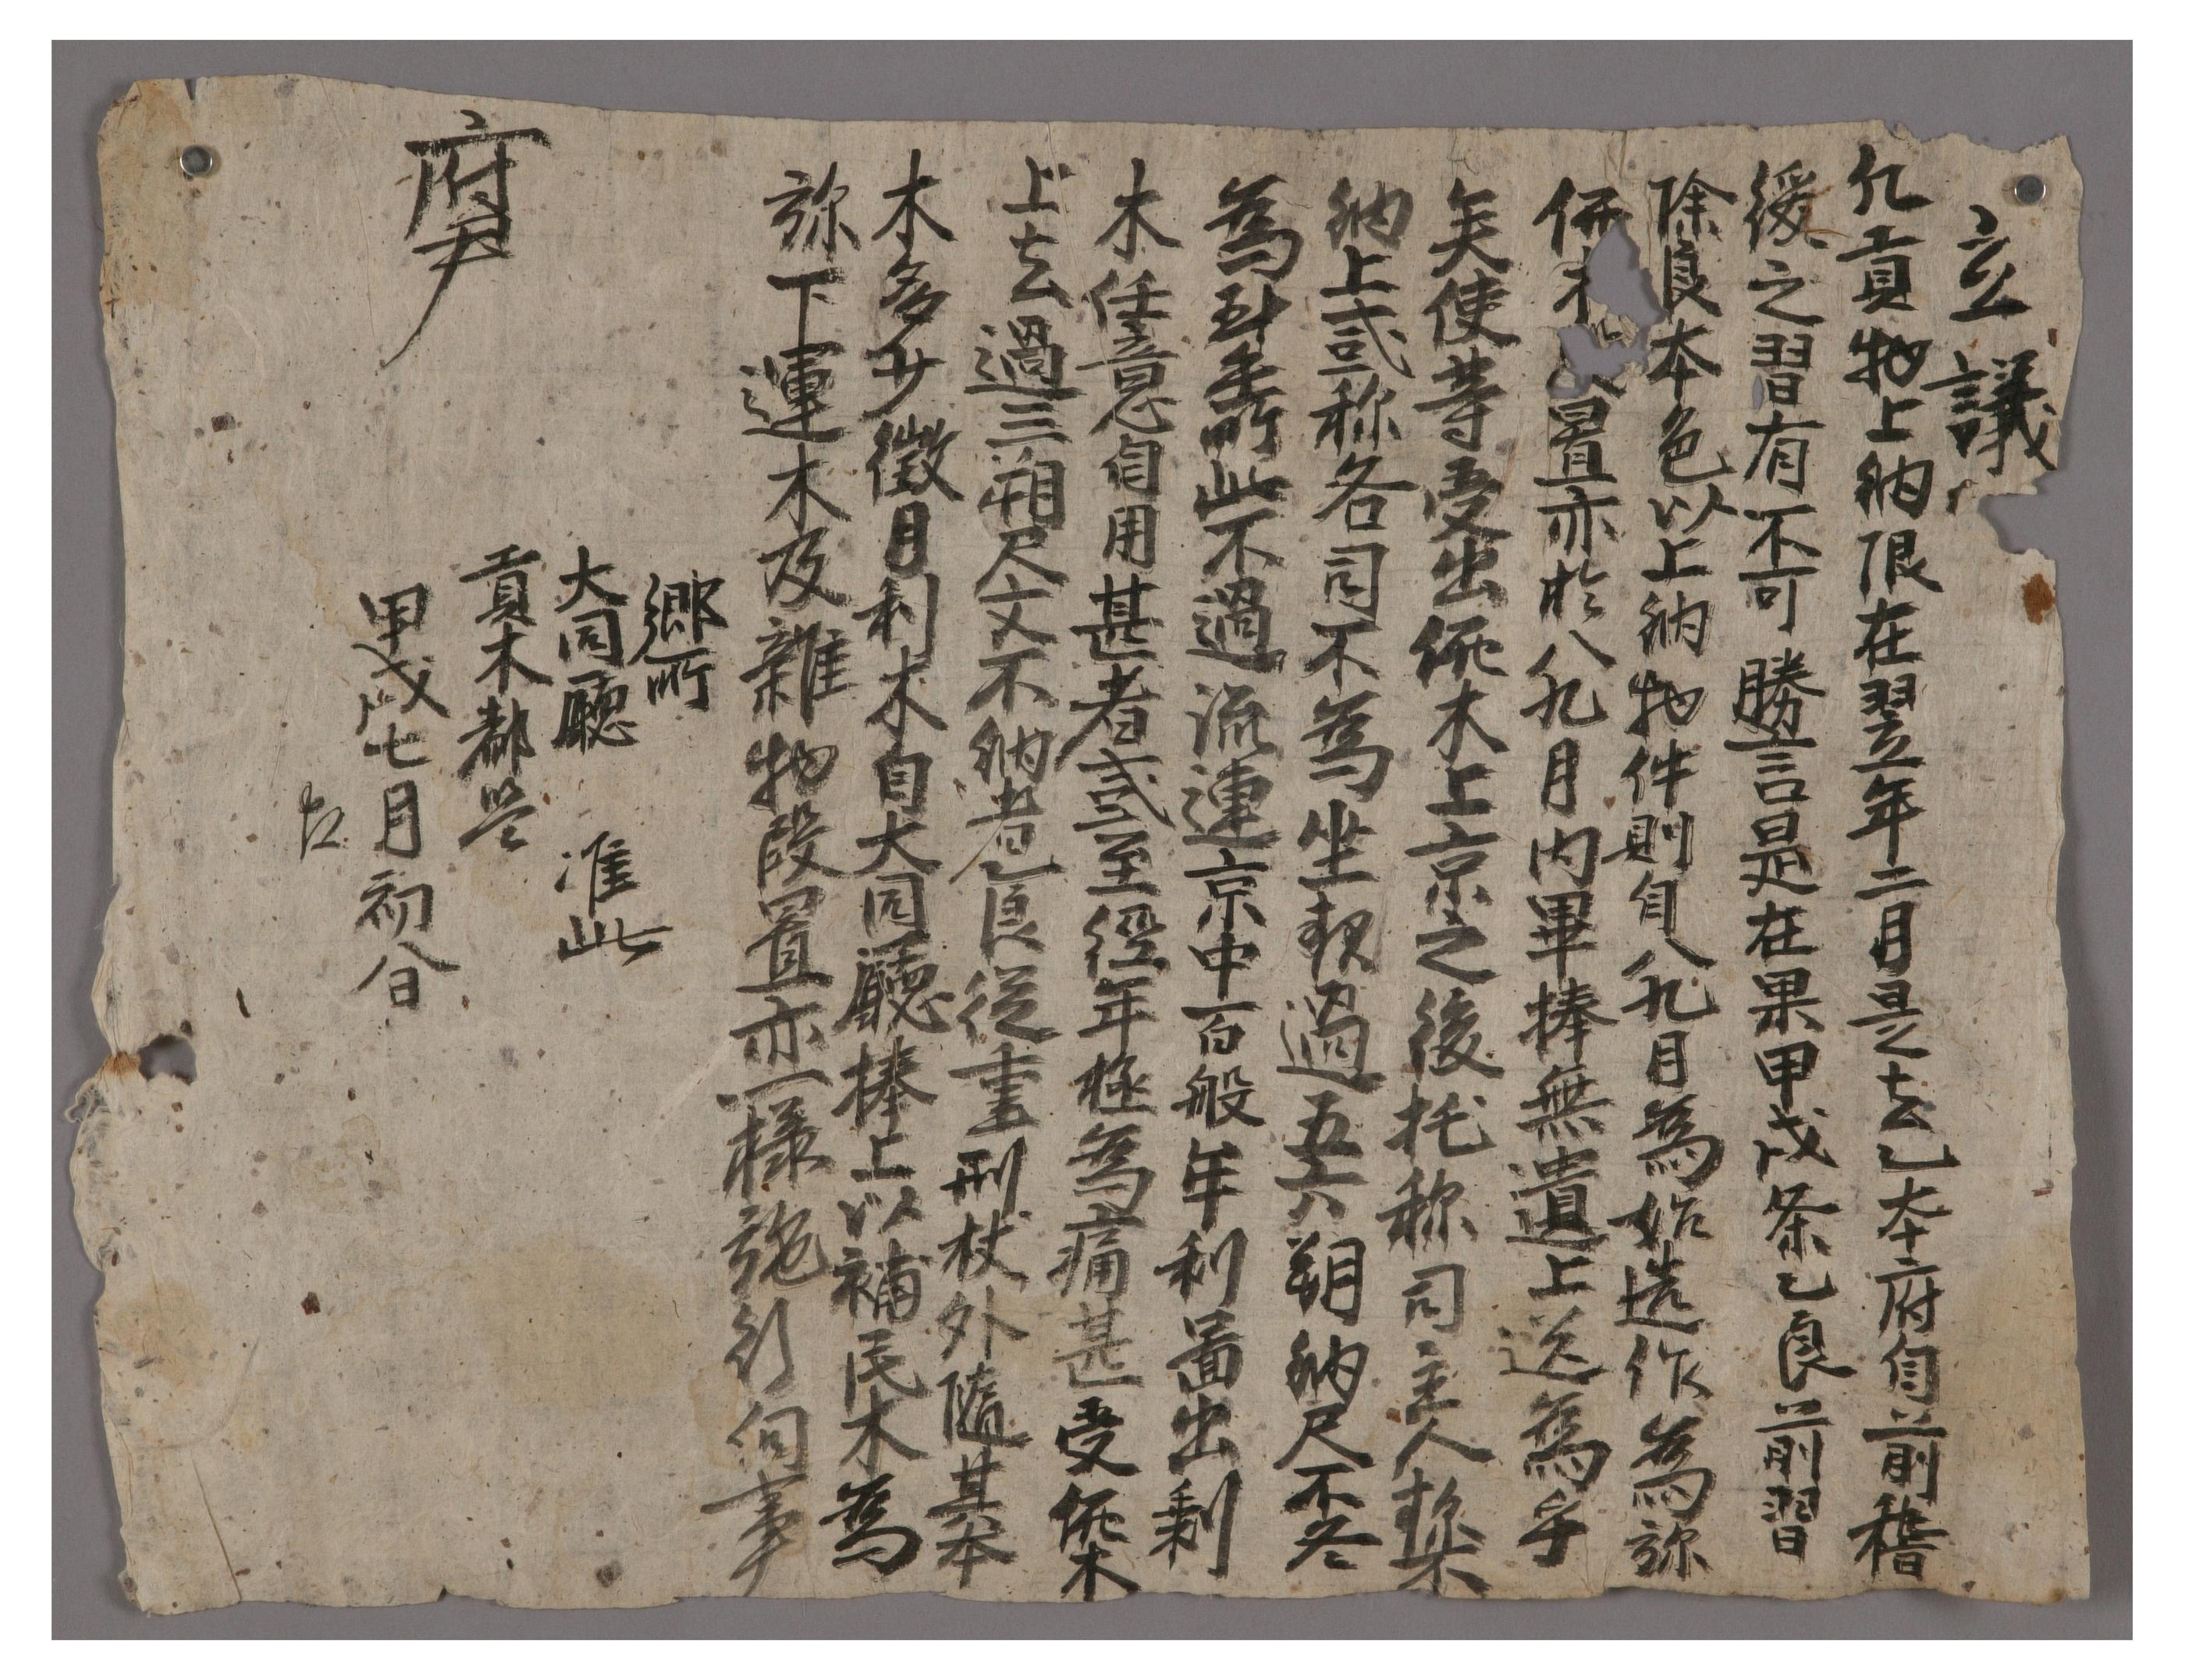 立議
凡貢物上納限在翌年二月是去乙本府自前稽
緩之習有不可勝言是在果甲戌条乙良前習
除良本色以上納物件則自八九月為始造作為弥
價木 置亦於八九月內畢捧無遺上送為乎
矣使等受出價木上京之後托称司主人
納上弍称各司不為坐起過五六朔納尺不
為 此不過流連京中百般年利啚出剩
木任意自用甚者弍至經年極為痛甚受價木
上去過三朔尺文不納者乙良從重刑杖外隨其本
木多少徵月利木自大同廳捧上以補民木為
弥下運木及雜物段置亦一樣施行向事
鄉所
大同廳 准此
貢木都監
甲戌七月初八日
府尹